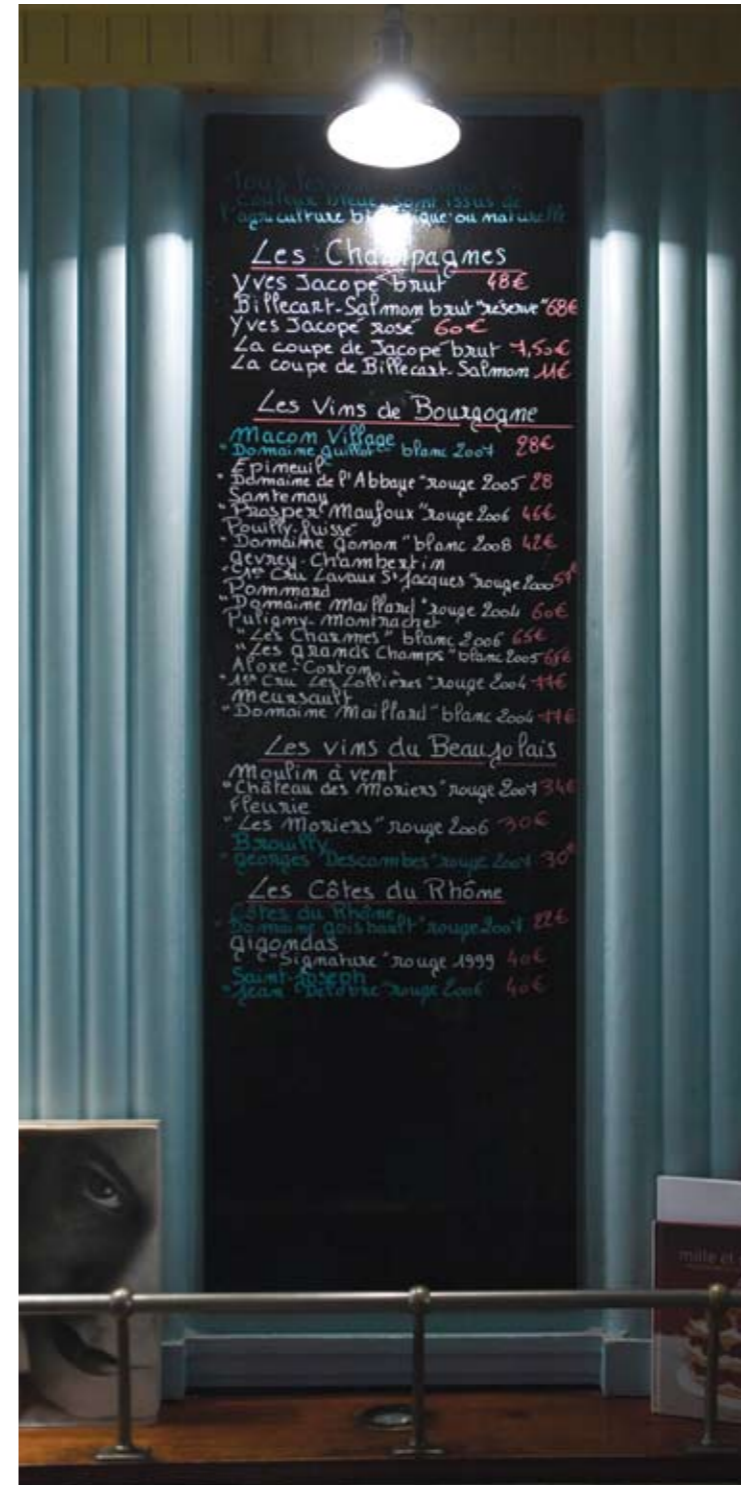 Tous les vins
couleur bleue sont issus de
l'agriculture ou naturelle
Les Champagnes
Yves Jacopé brut 48€
Billecart-Salmon brut "réserve" 68€
Yves Jacopé rosé 60€
La coupe de Jacopé brut 7,50€
La coupe de Billecart-Salmon 11€
Les Vins de Bourgogne
Macon Village
"Domaine Guillot" blanc 2007 28€
Epineuil
"Domaine de l'Abbaye" rouge 2005 28
Santenay
"Prosper Maufoux" rouge 2006 46€
Pouilly-fuissé
"Domaine Gonon" blanc 2008 42€
Gevrey-Chambertin
"1er Cru Lavaux St Jacques" rouge 2000
Pommard
"Domaine Maillard" rouge 2004 60€
Puligny-Montrachet
"Les Charmes" blanc 2006 65€
"Les Grands Champs" blanc 2005
Aloxe-Corton
"1er Cru Les Lollières" rouge 2004 77€
Meursault
"Domaine Maillard" blanc 2004 77€
Les vins du Beaujolais
Moulin à vent
"Château des Moriers" rouge 2007 34€
Fleurie
"Les Moriers" rouge 2006 30€
Brouilly
"Georges Descombes" rouge 2007 30€
Les Côtes du Rhône
Côtes du Rhône
Domaine Goisbault" rouge 2007 22€
Gigondas
"Signature" rouge 1999 40€
Saint-Joseph
"Jean rouge 2006 40€
mille et